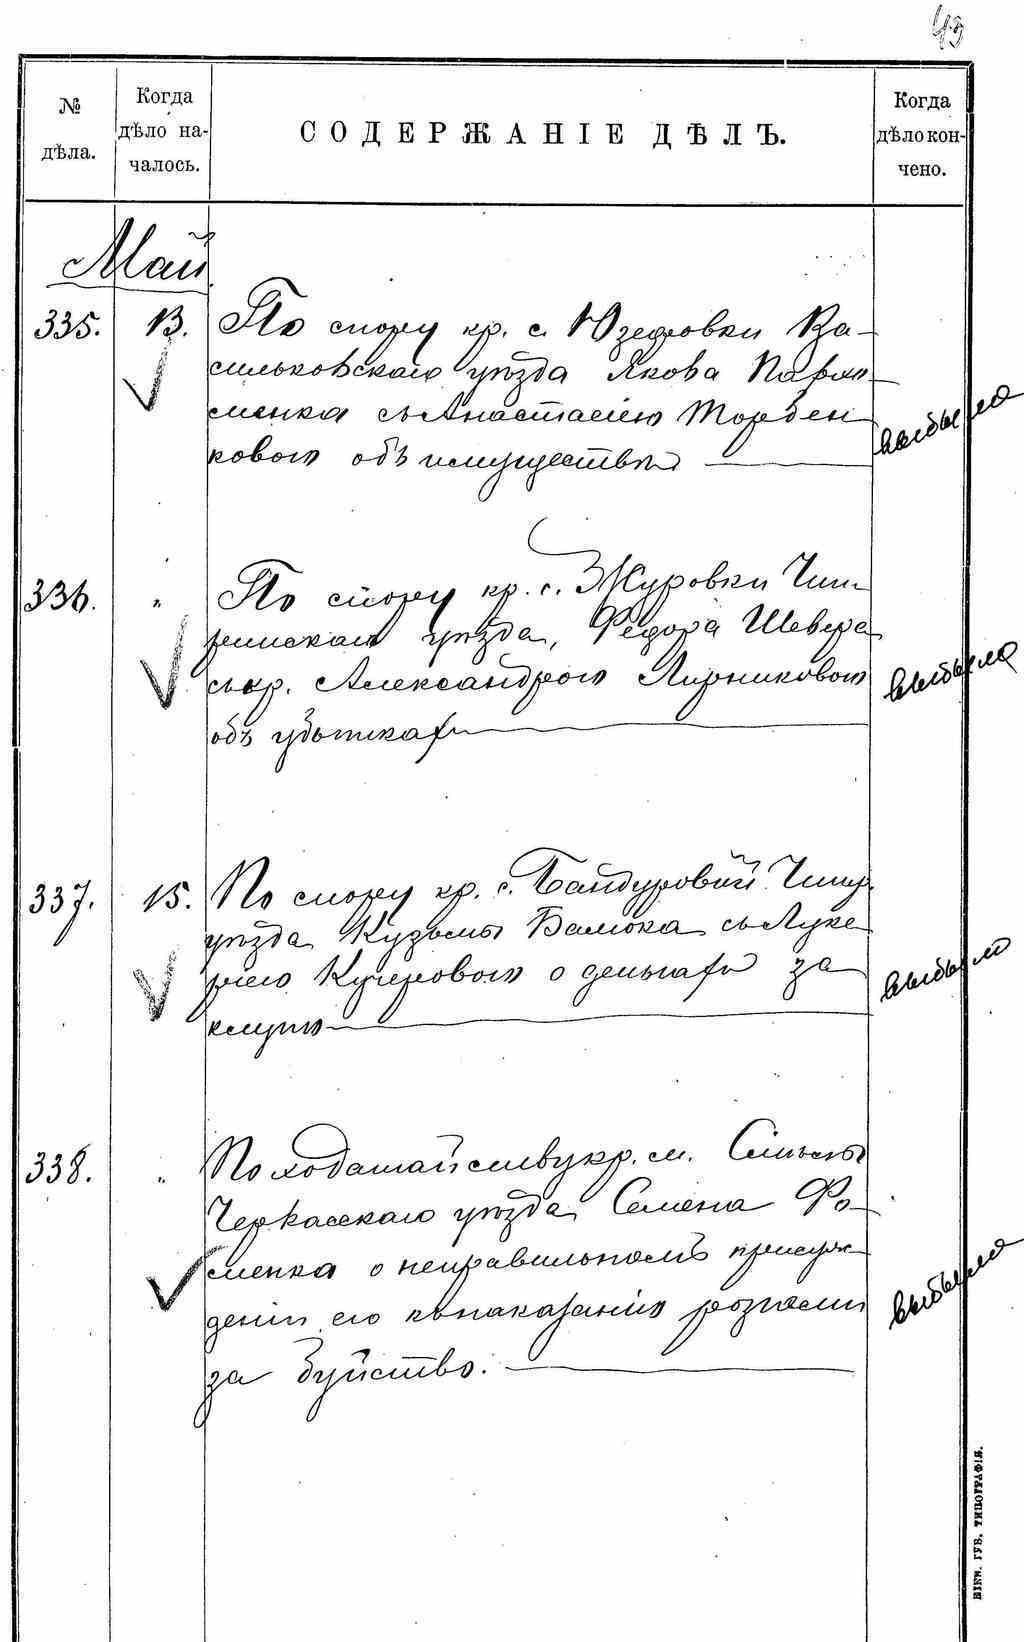 49
№ дѣла.
Когда дѣло началось.
СОДЕРЖАНІЕ ДѢЛЪ.
Когда дѣло кончено.
Май
335. 13. По спору кр. с. Юзефовки Ва-
сильковскаго уѣзда Якова Пархо-
менка съ Анастасіею Торбен
ковою объ имуществѣ
выбыло
336. „ По спору кр. с. Журовки Чиги-
ринскаго уѣзда, Федора Шевера
съ кр. Александрою Лирниковою
объ убыткахъ
выбыло
337. 15. По спору кр. с. Бандуровки Чигир.
уѣзда Кузьмы Балюка съ Луке
ріею Кучеровою о деньгахъ за
выбыло
338. „ По ходатайству кр. м. Смѣлы
Черкасскаго уѣзда Семена Фо-
менка о неправильномъ присуж-
деніи его къ наказанію розгами
за буйство.
выбыло
КІЕВ. ГУБ. ТИПОГРАФІЯ.